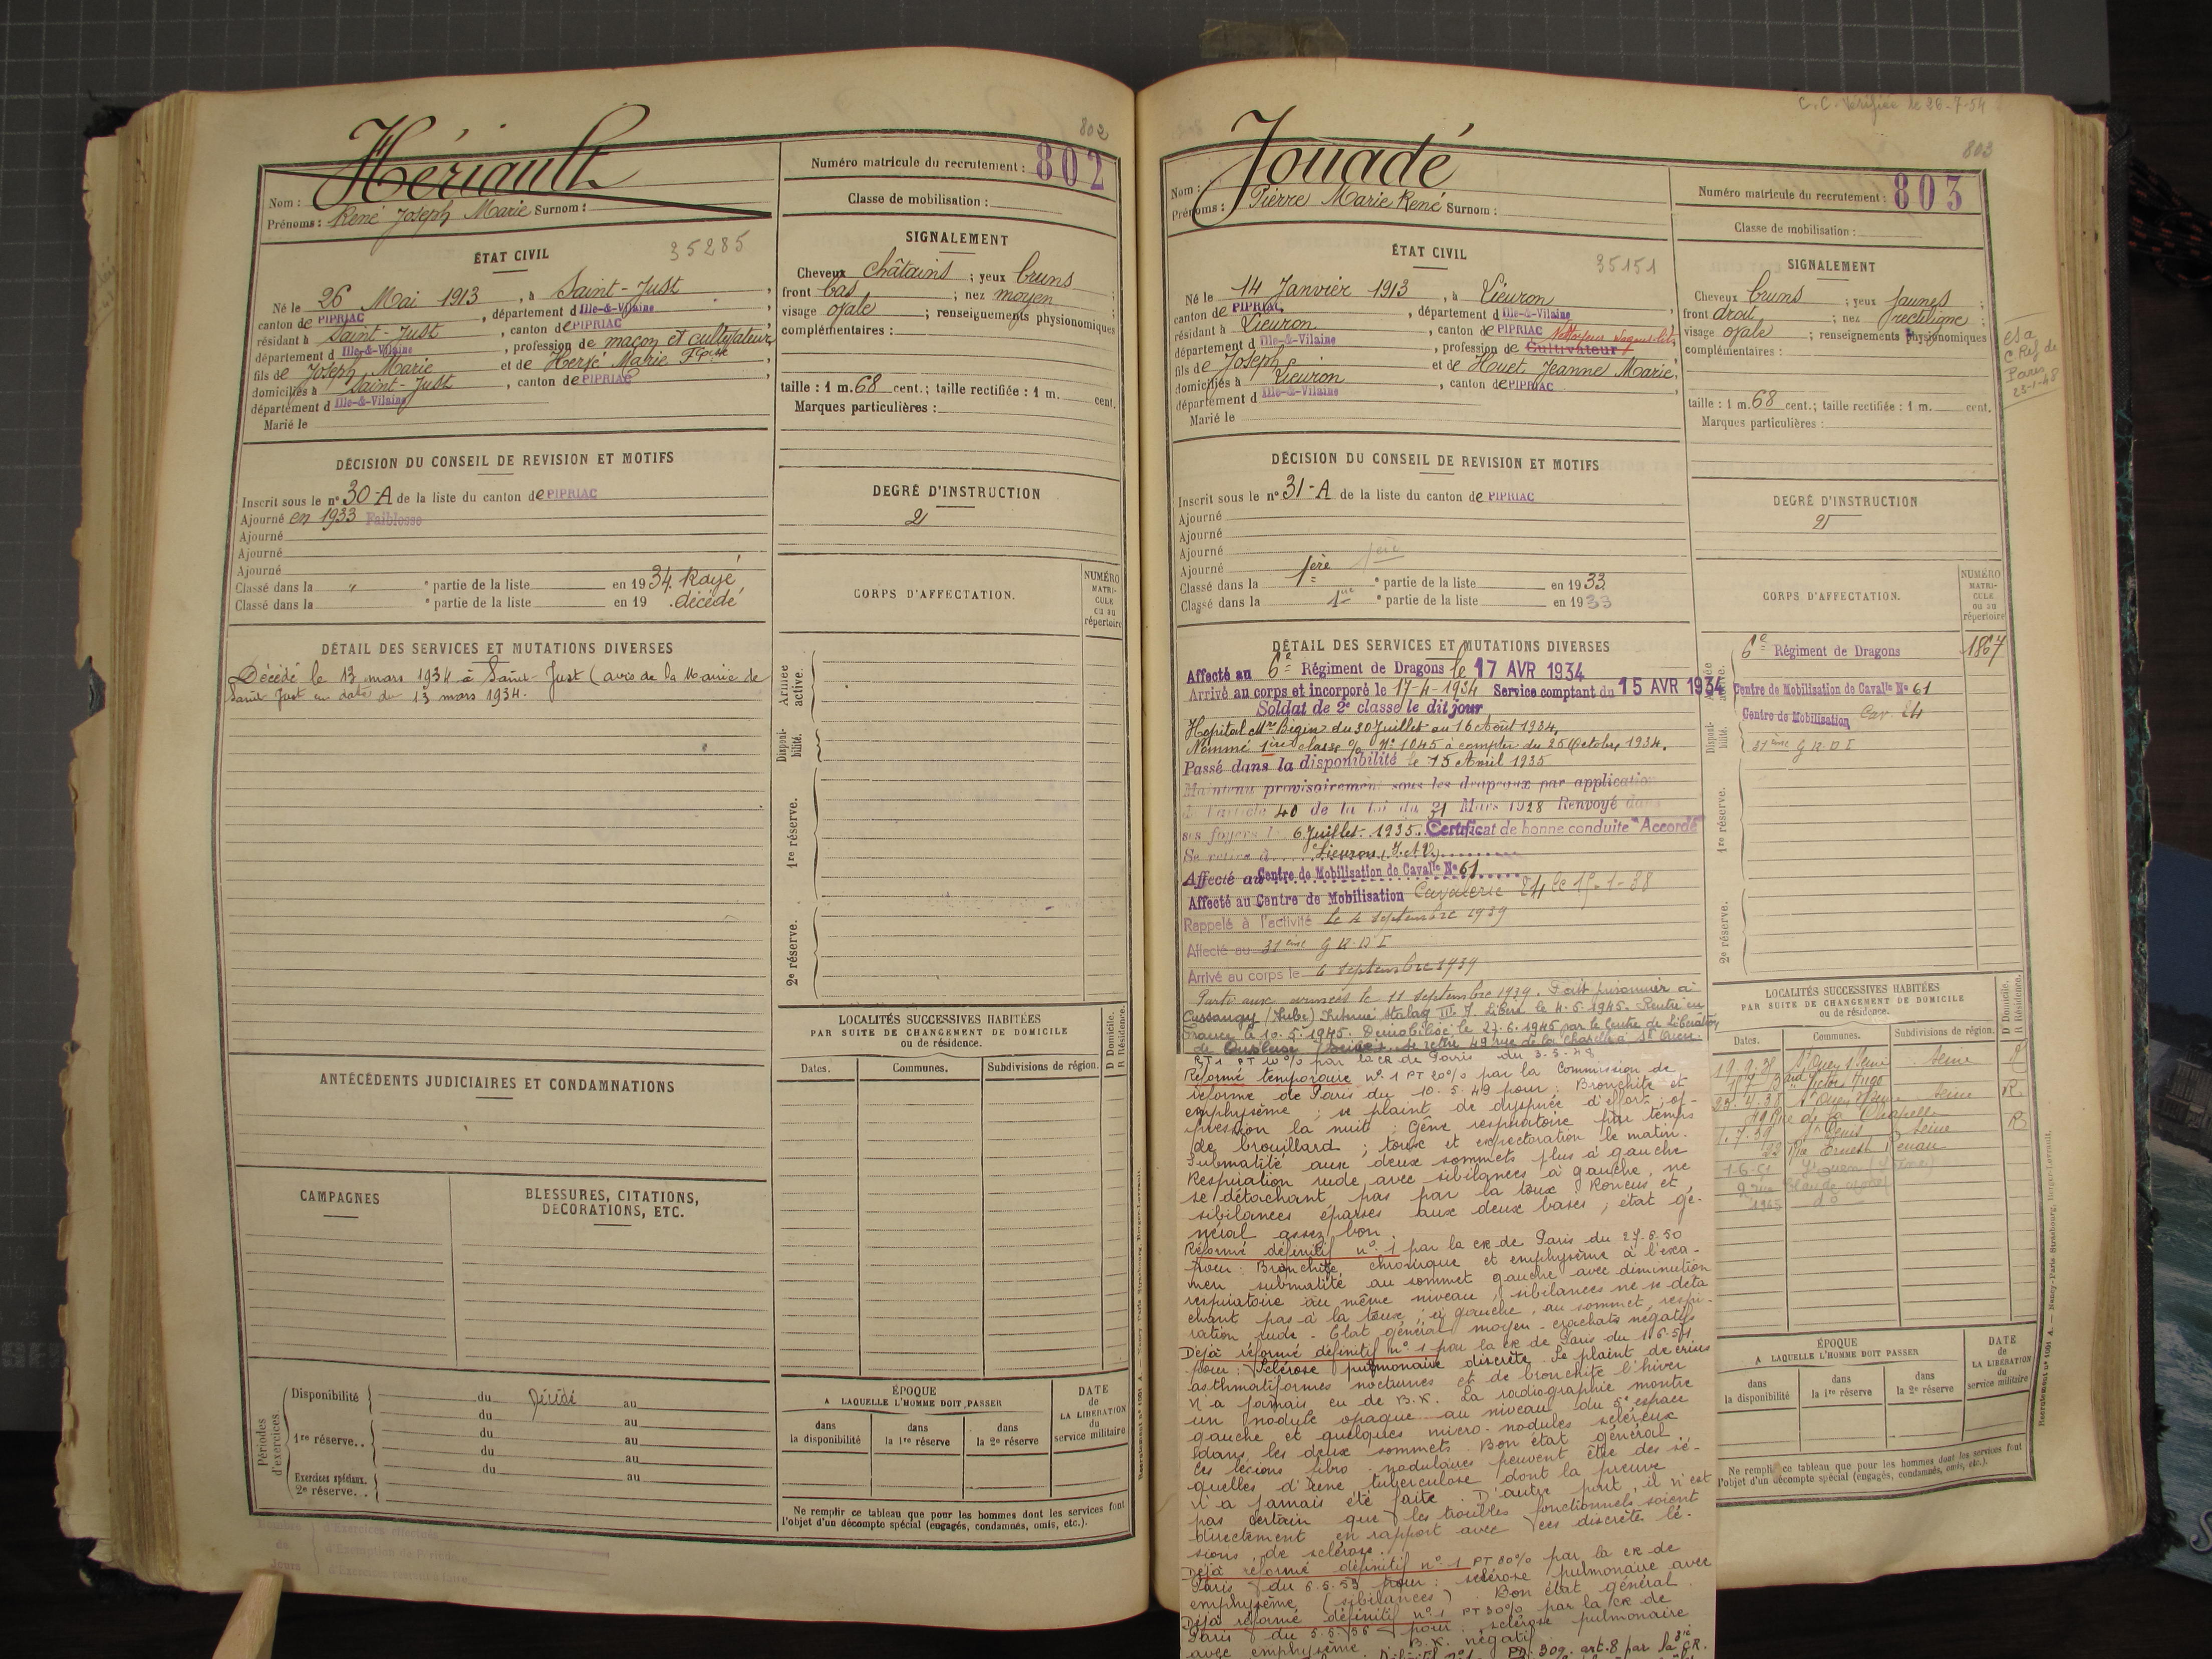 802
Hériault
Numéro matricule du recrutement : 802
Nom :
Prénoms : René Joseph Marie Surnom :
Classe de mobilisation :
ÉTAT CIVIL
35285
Né le 26 Mai 1913, à Saint-Just,
canton de PIPRIAC, département d Ille-&-Vilaine
résidant à Saint-Just, canton de PIPRIAC,
département d Ille-&-Vilaine, profession de maçon et cultivateur,
fils de Joseph Marie et de Hersé Marie Fçoise
domiciliés à Saint-Just, canton de PIPRIAC,
département d Ille-&-Vilaine
Marié le
SIGNALEMENT
Cheveux châtains ; yeux bruns ;
front bas ; nez moyen ;
visage ovale ; renseignements physionomiques
complémentaires :
taille : 1 m. 68 cent.; taille rectifiée : 1 m. cent.
Marques particulières :
DÉCISION DU CONSEIL DE REVISION ET MOTIFS
Inscrit sous le n° 30-A de la liste du canton de PIPRIAC
Ajourné en 1933 Faiblesse
Ajourné
Ajourné
Ajourné
Classé dans la " e partie de la liste en 1934. Rayé,
Classé dans la e partie de la liste en 19 . décédé
DEGRÉ D'INSTRUCTION
2
CORPS D'AFFECTATION.
NUMÉRO MATRICULE ou au répertoire
DÉTAIL DES SERVICES ET MUTATIONS DIVERSES
Décédé le 13 mars 1934 à Saint-Just (avis de la Mairie de
Saint Just en date du 13 mars 1934.
Armée active.
Disponibilité.
1re réserve.
2e réserve.
ANTÉCÉDENTS JUDICIAIRES ET CONDAMNATIONS
CAMPAGNES
BLESSURES, CITATIONS, DÉCORATIONS, ETC.
LOCALITÉS SUCCESSIVES HABITÉES
PAR SUITE DE CHANGEMENT DE DOMICILE
ou de résidence.
D Domicile. R Résidence.
Dates. Communes. Subdivisions de région.
Périodes d'exercices.
Disponibilité du Décédé au
du au
1re réserve.. du au
du au
Exercices spéciaux. 2e réserve... du au
ÉPOQUE
A LAQUELLE L'HOMME DOIT PASSER
dans la disponibilité
dans la 1re réserve
dans la 2e réserve
DATE de LA LIBÉRATION du service militaire
Ne remplir ce tableau que pour les hommes dont les services font
l'objet d'un décompte spécial (engagés, condamnés, omis, etc.).
C.C. Vérifiée le 26-7-54
803
Jouadé
Numéro matricule du recrutement : 803
Nom :
Prénoms : Pierre Marie René Surnom :
Classe de mobilisation :
ÉTAT CIVIL
35151
Né le 14 Janvier 1913, à Lieuron,
canton de PIPRIAC, département d Ille-&-Vilaine
résidant à Lieuron, canton de PIPRIAC
département d Ille-&-Vilaine, profession de Cultivateur
fils de Joseph et de Huet Jeanne Marie,
domiciliés à Lieuron, canton de PIPRIAC,
département d Ille-&-Vilaine
Marié le
SIGNALEMENT
Cheveux bruns ; yeux jaunes ;
front droit ; nez rectiligne ;
visage ovale ; renseignements physionomiques
complémentaires :
taille : 1 m. 68 cent.; taille rectifiée : 1 m. cent.
Marques particulières :
C Réf de
Paris
23-1-48
DÉCISION DU CONSEIL DE REVISION ET MOTIFS
Inscrit sous le n° 31-A de la liste du canton de PIPRIAC
Ajourné
Ajourné
Ajourné
Ajourné
Classé dans la 1ère e partie de la liste en 1933
Classé dans la 1ère e partie de la liste en 1933
DEGRÉ D'INSTRUCTION
2
CORPS D'AFFECTATION.
NUMÉRO MATRICULE ou au répertoire
6e Régiment de Dragons 1867
Centre de Mobilisation de Cavalle No 61
Centre de Mobilisation Cav. 24
31ème G R D I
DÉTAIL DES SERVICES ET MUTATIONS DIVERSES
Affecté au 6e Régiment de Dragons le 17 AVR 1934
Arrivé au corps et incorporé le 17-4-1934 Service comptant du 15 AVR 1934
Soldat de 2e classe le dit jour
Hopital Mre Bégin du 30 Juillet au 16 Août 1934.
Nommé 1ère classe % No 1045 à compter du 25 Octobre 1934.
Passé dans la disponibilité le 15 Avril 1935
Maintenu provisoirement sous les drapeaux par application
de l'article 40 de la loi du 31 Mars 1928 Renvoyé dans
ses foyers l 6 Juillet 1935. Certificat de bonne conduite "Accordé"
Se retire à Lieuron (I. et V.)
Affecté au Centre de Mobilisation de Cavalle No 61
Affecté au Centre de Mobilisation Cavalerie 24 le 15-1-38
Rappelé à l'activité le 4 septembre 1939
Affecté au 31ème G R D I
Arrivé au corps le 6 septembre 1939
Parti aux armées le 11 septembre 1939. Fait prisonnier à
Cussangy (Aube) Interné Stalag III. Libéré le 4-5-1945. Rentré en
France le 10-5-1945. Démobilisé le 27-6-1945 par le Centre de Libération
de (Seine). Se retire 49 rue de la Chapelle à St Ouen.
RT1 PT 10% par la CR de Paris du 3-5-48
Réformé temporaire n° 1 PT 20% par la Commission de
réforme de Paris du 10.5.49 pour : Bronchite et
emphysème ; se plaint de dyspnée d'effort, op-
pression la nuit ; Gêne respiratoire par temps
de brouillard ; toux et expectoration le matin.
Submatité aux deux sommets plus à gauche
Respiration rude, avec sibilances à gauche, ne
se détachant pas par la toux ; Roncus et
sibilances éparses aux deux bases ; état gé-
néral assez bon.
Réformé définitif n° 1 par la CR de Paris du 27-6.50
pour : Bronchite chronique et emphysème à l'exa-
men submatité au sommet gauche avec diminution
respiratoire au même niveau, sibilances ne se déta
chant pas à la toux ; à gauche, au sommet, respi-
ration rude - Etat général moyen - crachats négatifs
Déjà réformé définitif n° 1 par la CR de Paris du 1.6.51
pour : Sclérose pulmonaire discrète. Se plaint de crises
asthmatiformes nocturnes et de bronchite l'hiver
n'a jamais eu de B.K. La radiographie montre
un nodule opaque au niveau du 5e espace
gauche et quelques micro-nodules scléreux
dans les deux sommets. Bon état général.
Ces lésions fibro-nodulaires peuvent être des sé-
quelles d'une tuberculose dont la preuve
n'a jamais été faite. D'autre part, il n'est
pas certain que les troubles fonctionnels soient
directement en rapport avec ces discrètes lé-
sions de sclérose.
Déjà réformé définitif n° 1 PT 30% par la CR de
Paris du 6.5.53 pour : sclérose pulmonaire avec
emphysème (sibilances). Bon état général
Déjà réformé définitif n° 1 PT 30% par la CR de
Paris du 5.5.56 pour : sclérose pulmonaire
avec emphysème. B.K. négatif
art. 8 par la 3e CR.
Armée active.
Disponibilité.
1re réserve.
2e réserve.
LOCALITÉS SUCCESSIVES HABITÉES
PAR SUITE DE CHANGEMENT DE DOMICILE
ou de résidence.
D Domicile. R Résidence.
Dates. Communes. Subdivisions de région.
St Ouen s/Seine Seine
Bard Victor Hugo
St Ouen s/Seine Seine R
49 Rue de la Chapelle
1.7.39 St Denis Seine R
Rue Ernest Renan
1-6-51 St Ouen (Seine)
ÉPOQUE
A LAQUELLE L'HOMME DOIT PASSER
dans la disponibilité
dans la 1re réserve
dans la 2e réserve
DATE de LA LIBÉRATION du service militaire
Ne remplir ce tableau que pour les hommes dont les services font
l'objet d'un décompte spécial (engagés, condamnés, omis, etc.).